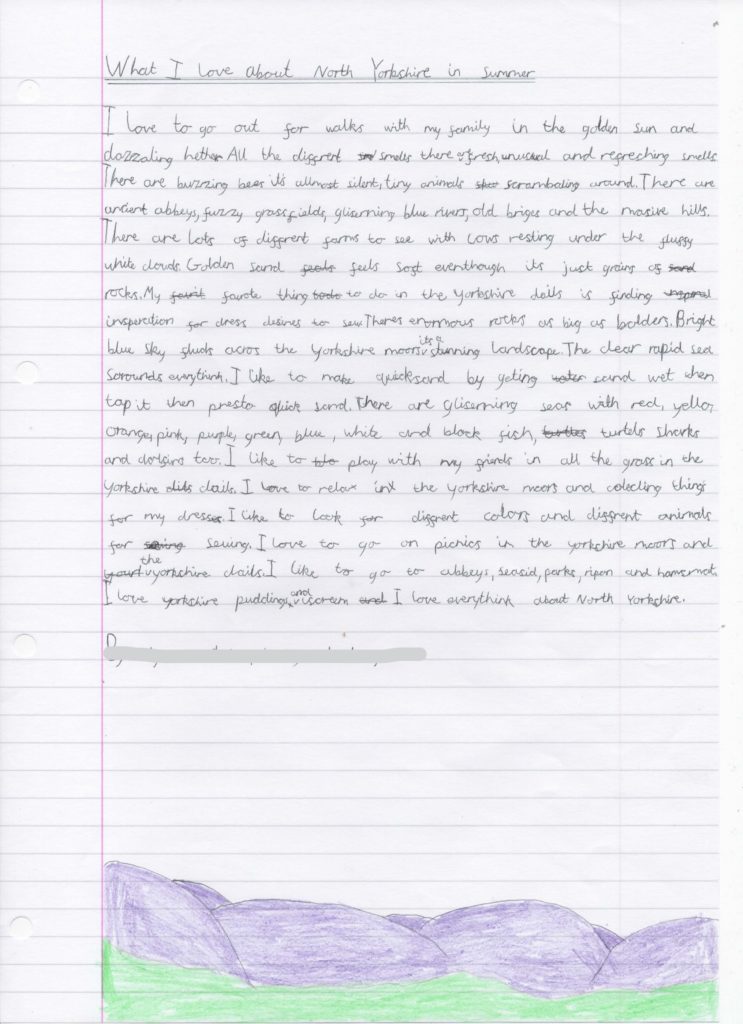 What I love about North Yorkshire in summer
I love to go out for walks with my family in the golden sun and
dazzaling hether All the different smells there of fresh, unusual and refreching smells
There are buzzing bees it's allmost silent, tiny animals scrambaling around. There are
ancient abbeys, fuzzy grassfields, gliserning blue rivers, old briges and the masive hills.
There are lots of different farms to see with cows resting under the fluffy
white clouds. Golden sand feels soft eventhough its just grains of
rocks. My favote thing to do in the Yorkshire dails is finding
insperation for dress desines to sew. Theres enormous rocks as big as bolders. Bright
blue sky across the Yorkshire moors it's a stunning landscape. The clear rapid sea
sarounds everythink. I like to make quicksand by geting sand wet then
tap it then presto quick sand. There are gliserning seas with red, yellow,
orange, pink, purple, green, blue, white and black fish, turtels sharks
and too. I like to play with my friends in all the grass in the
Yorkshire dails. I love to relax in the Yorkshire moors and colecting things
for my dress. I like to look for diffrent colors and diffrent animals
for sewing. I love to go on picnics in the yorkshire moors and
the yorkshire dails. I like to go to abbeys, seasid, parks, ripon and
I love yorkshire puddings, and iscream I love everythink about North Yorkshire.